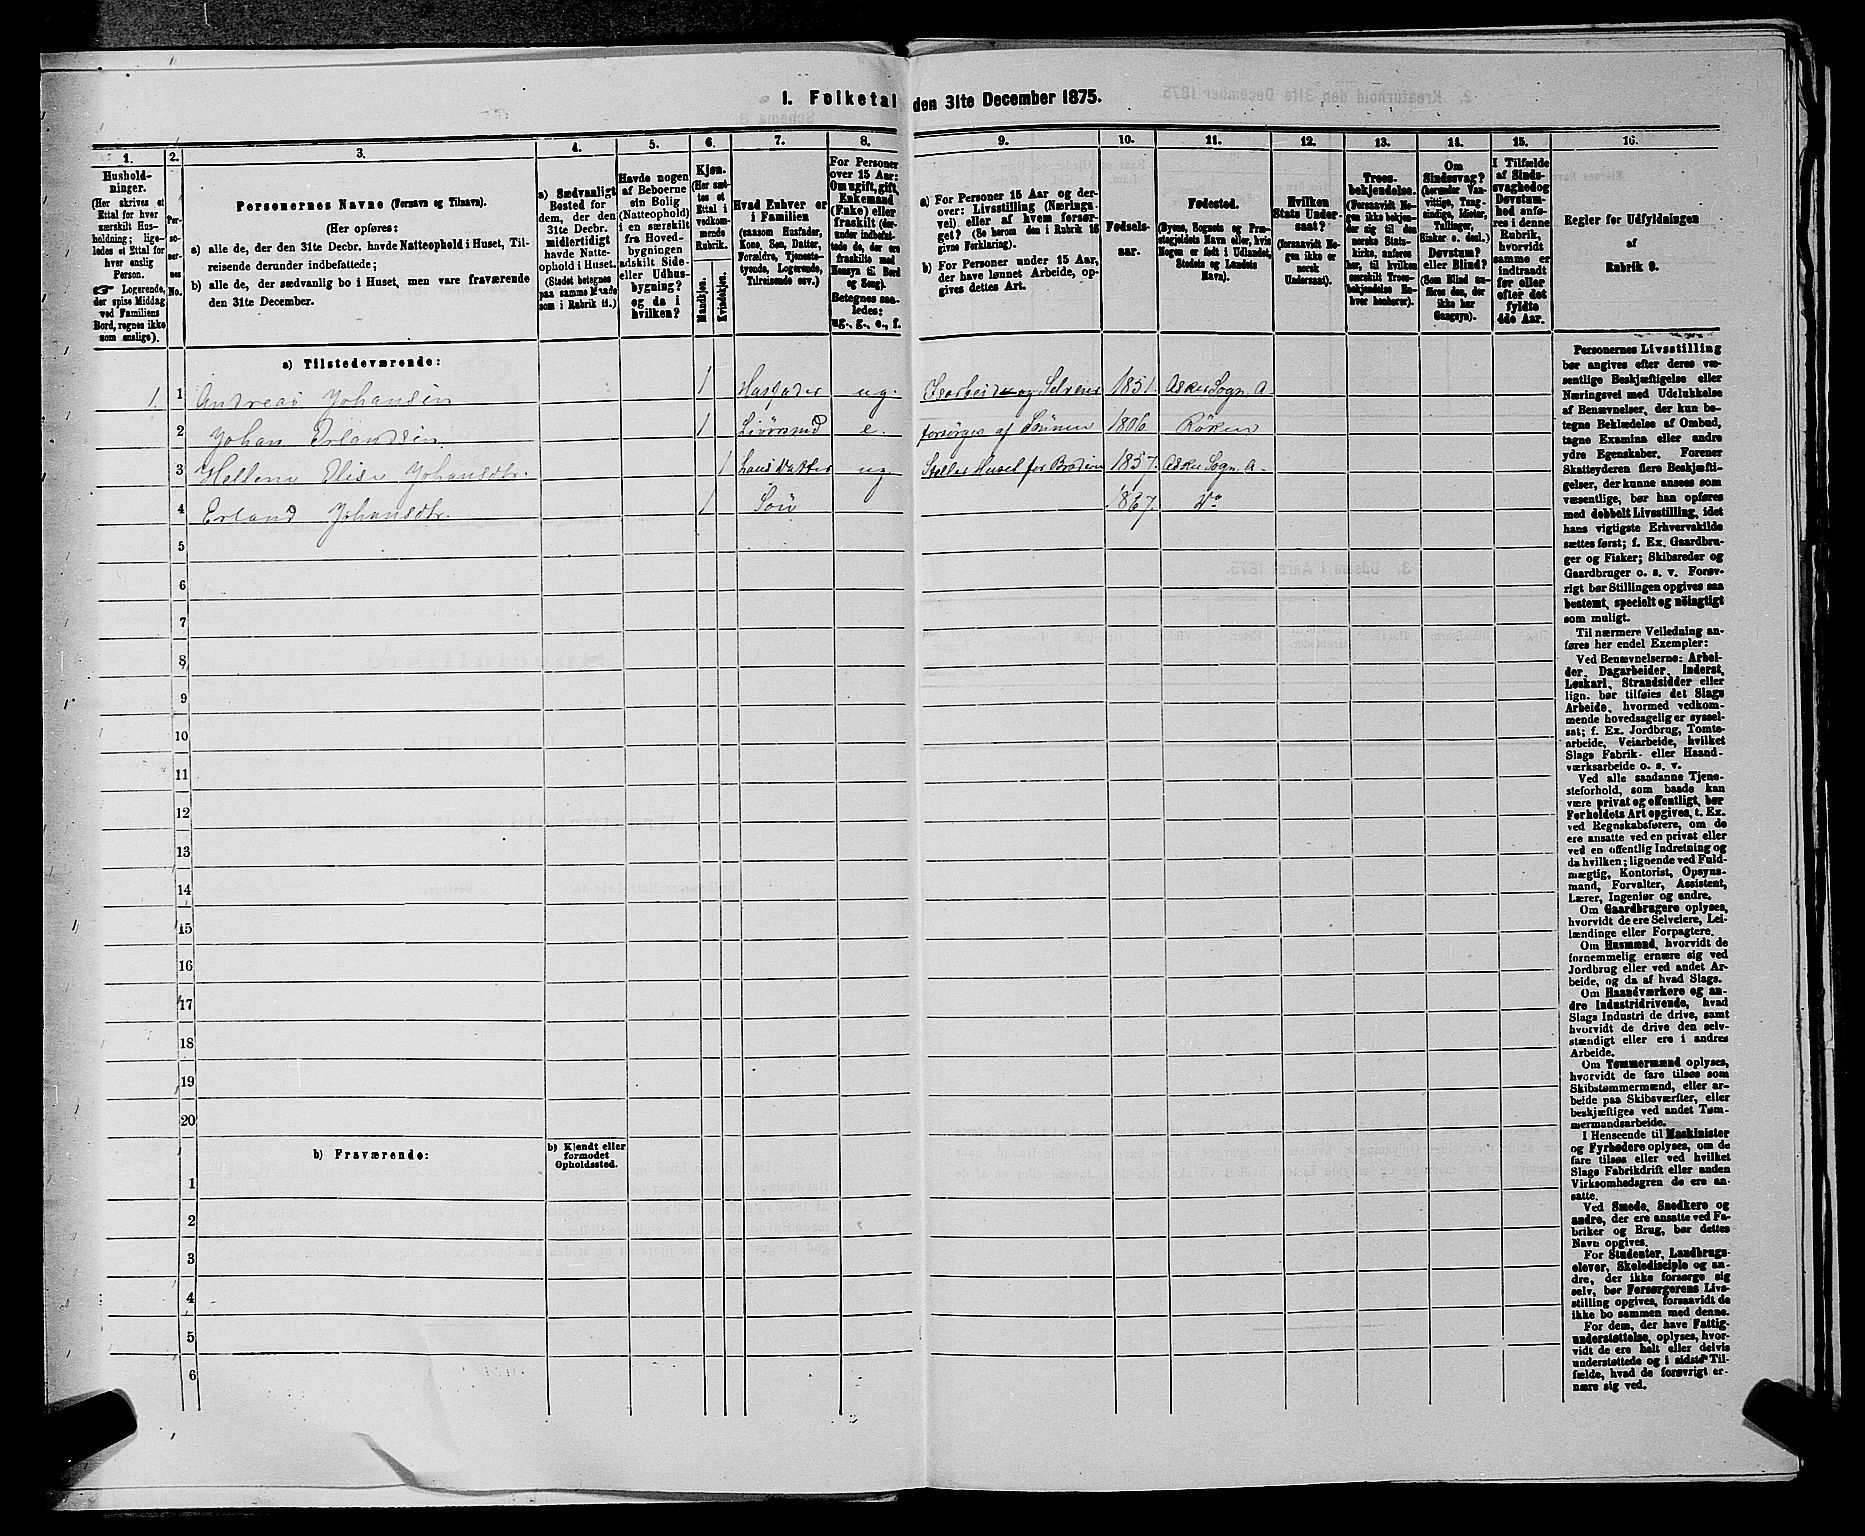 1. Folketal den 31te December 1875.
1. 2. 3. 4. 5. 6. 7. 8. 9. 10. 11. 12. 13. 14. 15. 16.
Husholdninger.
(Her skrives et
Ettal for hver
særskilt Husholdning; ligeledes
et Ettal for
hver enslig
Person.
☛ Logerende,
der spise Middag
ved Familiens
Bord, regnes ikke
som enslige).
Personernes No.
Personernes Navne (Fornavn og Tilnavn).
(Her opføres:
a) alle de, der den 31te Decbr. havde Natteophold i Huset, Tilreisende
derunder indbefattede;
b) alle de, der sædvanlig bo i Huset, men vare fraværende
den 31te December.
a) Sædvanligt
Bosted for
dem, der den
31te Decbr.
midlertidigt
havde Natteophold
i Huset.
(Stedet betegnes
paa samme Maade
som i Rubrik 11.)
Havde nogen
af Beboerne
sin Bolig
(Natteophold)
i en særskilt
fra Hovedbygningen
adskilt Side-
eller Udhusbygning?
og da i
hvilken?
Kjøn.
(Her sættes
et
Ettal i
vedkommende
Rubrik.
Mandkjøn.
Kvindekjøn.
Hvad Enhver er
i Familien
(saasom Husfader,
Kone, Søn, Datter,
Forældre, Tjenestetyende,
Logerende,
Tilreisende osv.)
For Personer
over 15 Aar:
Om ugift, gift,
Enkemand
(Enke) eller
fraskilt (derunder
indbefattede
de, der ere
fraskilte med
Hensyn til Bord
og Seng).
Betegnes saaledes:
ug., g., e., f.
a) For Personer 15 Aar og derover:
Livsstilling (Næringsvei)
eller af hvem forsørget?
(Se herom den i Rubrik 16
givne Forklaring).
b) For Personer under 15 Aar,
der have lønnet Arbeide, opgives
dettes Art.
Fødselsaar.
Fødested.
(Byens, Sognets og Præstegjeldets
Navn eller, hvis
Nogen er født i Udlandet,
Stedets og Landets
Navn).
Hvilken
Stats Undersaat?
(forsaavidt Nogen
ikke er
norsk
Undersaat).
Troesbekjendelse.
(Forsaavidt Nogen
ikke bekjender
sig til den
norske Statskirke,
anføres
her, til hvilken
særskilt Troesbekjendelse
Enhver
henhører).
Om
Sindssvag?
(herunder Vanvittige,
Tungsindige,
Idioter,
Sinker o. desl.)
Døvstum?
eller Blind?
(Som Blind anføres
den, der
ikke har
Gangsyn).
I Tilfælde
af Sindssvaghed
og
Døvstumhed
anføres
i denne
Rubrik,
hvorvidt
samme er
indtraadt
før eller
efter det
fyldte
4de Aar.
Regler for Udfyldningen
af
Rubrik 9.
a) Tilstedeværende:
1. 1 Andreas Johansen 1 Husfader ug. og Selveier 1851. Asker Sogn. A.
2 Johan Erlandsen 1 e. forsørges af Sønnen 1806 Røken
3 Hellene Elise Johansdtr. 1 hans Datter ug. Steller Huset for Broderen 1857. Asker Sogn. A.
4 Erland Johansdtr. 1 Søn 1867. do
5
6
7
8
9
10
11
12
13
14
15
16
17
18
19
20
b) Fraværende: b) Kjendt eller
formodet
Opholdssted.
1
2
3
4
5
6
Personernes Livsstilling
bør angives efter deres væsentlige
Beskjæftigelse eller
Næringsvei med Udelukkelse
af Benævnelser, der kun betegne
Beklædelse af Ombud,
tagne Examina eller andre
ydre Egenskaber. Forener
Skatteyderen flere Beskjæftigelser,
der kunne ansees som
væsentlige, bør han opføres
med dobbelt Livsstilling, idet
hans vigtigste Erhvervskilde
sættes først; f. Ex. Gaardbruger
og Fisker; Skibsreder og
Gaardbruger o. s. v. Forøvrigt
bør Stillingen opgives saa
bestemt, specielt og nøiagtigt
som muligt.
Til nærmere Veiledning anføres
her endel Exempler:
Ved Benævnelserne: Arbeider,
Dagarbeider, Inderst,
Løskarl, Strandsidder eller
lign. bør tilføies det Slags
Arbeide, hvormed vedkommende
hovedsagelig er sysselsat;
f. Ex. Jordbrug, Tomtearbeide,
Veiarbeide, hvilket
Slags Fabrik- eller Haandværksarbeide
o. s. v.
Ved alle saadanne Tjenesteforhold,
som baade kan
være privat og offentligt, bør
Forholdets Art opgives, t. Ex.
ved Regnskabsførere, om de
ere ansatte ved en privat eller
ved en offentlig Indretning og
da hvilken; lignende ved Fuldmægtig,
Kontorist, Opsynsmand,
Forvalter, Assistent,
Lærer, Ingeniør og andre.
Om Gaardbrugere oplyses,
hvorvidt de ere Selveiere, Leilændinge
eller Forpagtere.
Om Husmænd, hvorvidt de
fornemmelig ernære sig ved
Jordbrug eller ved andet Arbeide,
og da af hvad Slags.
Om Haandværkere og andre
Industridrivende, hvad
Slags Industri de drive, samt
hvorvidt de drive den selvstændigt
eller ere i andres
Arbeide.
Om Tømmermænd oplyses,
hvorvidt de fare tilsøs som
Skibstømmermænd, eller arbeide
paa Skibsværfter, eller
beskjæftiges ved andet Tømmermandsarbeide.
I Henseende til Maskinister
og Fyrbødere oplyses, om de
fare tilsøs eller ved hvilket
Slags Fabrikdrift eller anden
Virksomhedsgren de ere ansatte.
Ved Smede, Snedkere og
andre, der ere ansatte ved Fabriker
og Brug, bør dettes
Navn opgives.
For Studenter, Landbrugselever,
Skoledisciple og andre,
der ikke forsørge sig
selv, bør Forsørgerens Livsstilling
opgives, forsaavidt de
ikke bo sammen med denne.
For dem, der have Fattigunderstøttelse,
oplyses, hvorvidt
de ere helt eller delvis
understøttede og i sidste Tilfælde,
hvad de forøvrigt ernære
sig ved.